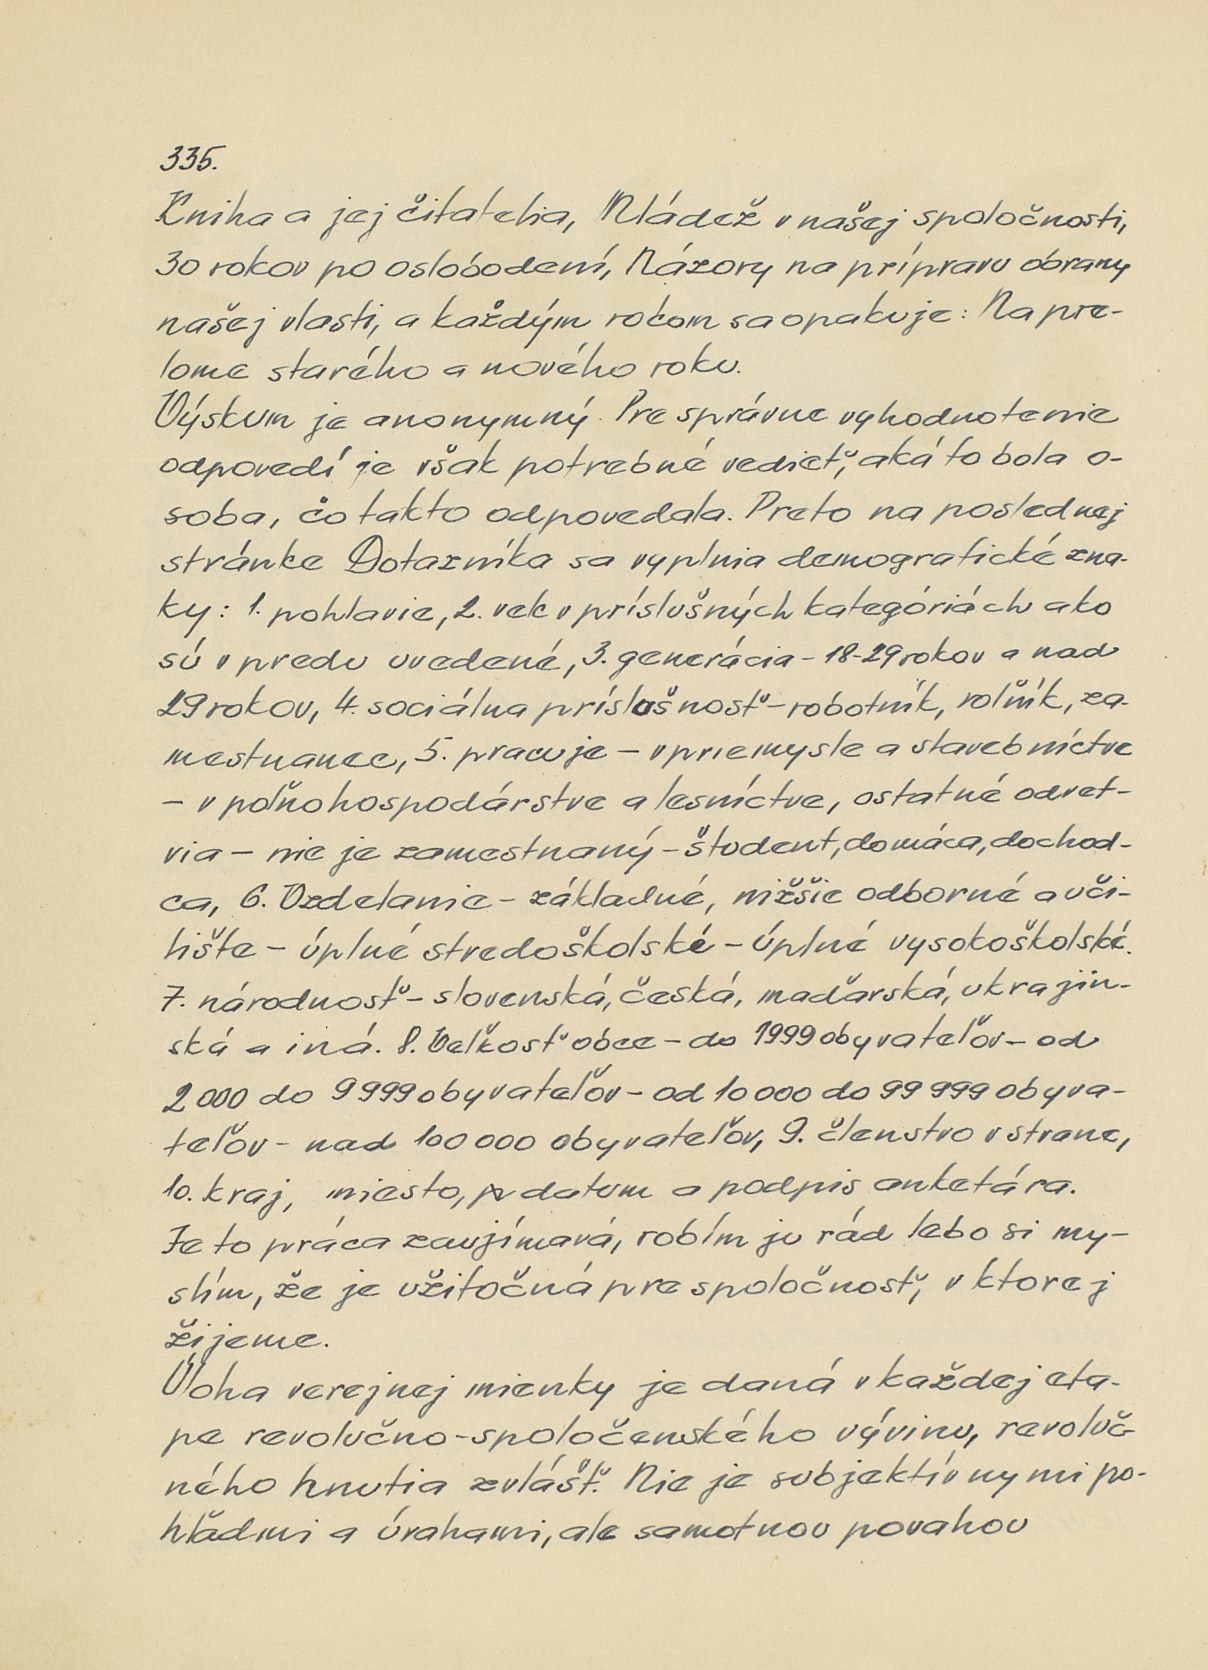 335.
Kniha a jej čitatelia, Mládež v našej spoločnosti,
30 rokov po oslobodení, Názory na prípravu obrany
našej vlasti, a každým rokom sa opakuje: Na pre-
lome starého a nového roku.
Výskum je anonymný. Pre správne vyhodnotenie
odpovedí je však potrebné vedieť, aká to bola o-
soba, čo takto odpovedala. Preto na poslednej
stránke Dotazníka sa vyplnia demografické zna-
ky: 1. pohlavie, 2. vek v príslušných kategóriách ako
sú v predu uvedené, 3. generácia - 18-29 rokov a nad
29 rokov, 4. sociálna príslušnosť - robotník, roľník, za-
mestnanec, 5. pracuje - v priemysle a stavebníctve
- v poľnohospodárstve a lesníctve, ostatné odvet-
via - nie je zamestnaný - študent, domáca, dochod-
ca, 6. Vzdelanie - základné, nižšie odborné a uči-
lište - úplné stredoškolské - úplné vysokoškolské.
7. národnosť - slovenská, česká, maďarská, ukrajin-
ská a iná. 8. Veľkosť obce - do 1999 obyvateľov - od
2 000 do 9 999 obyvateľov - od 10 000 do 99 999 obyva-
teľov - nad 100 000 obyvateľov, 9. členstvo v strane,
10. kraj, miesto, datum a podpis anketára.
Je to práca zaujímavá, robím ju rád lebo si my-
slím, že je užitočná pre spoločnosť, v ktorej
žijeme.
Úloha verejnej mienky je daná v každej eta-
pe revolučno-spoločenského vývinu, revoluč-
ného hnutia zvlášť. Nie je subjektívnymi po-
hľadmi a úvahami, ale samotnou povahou